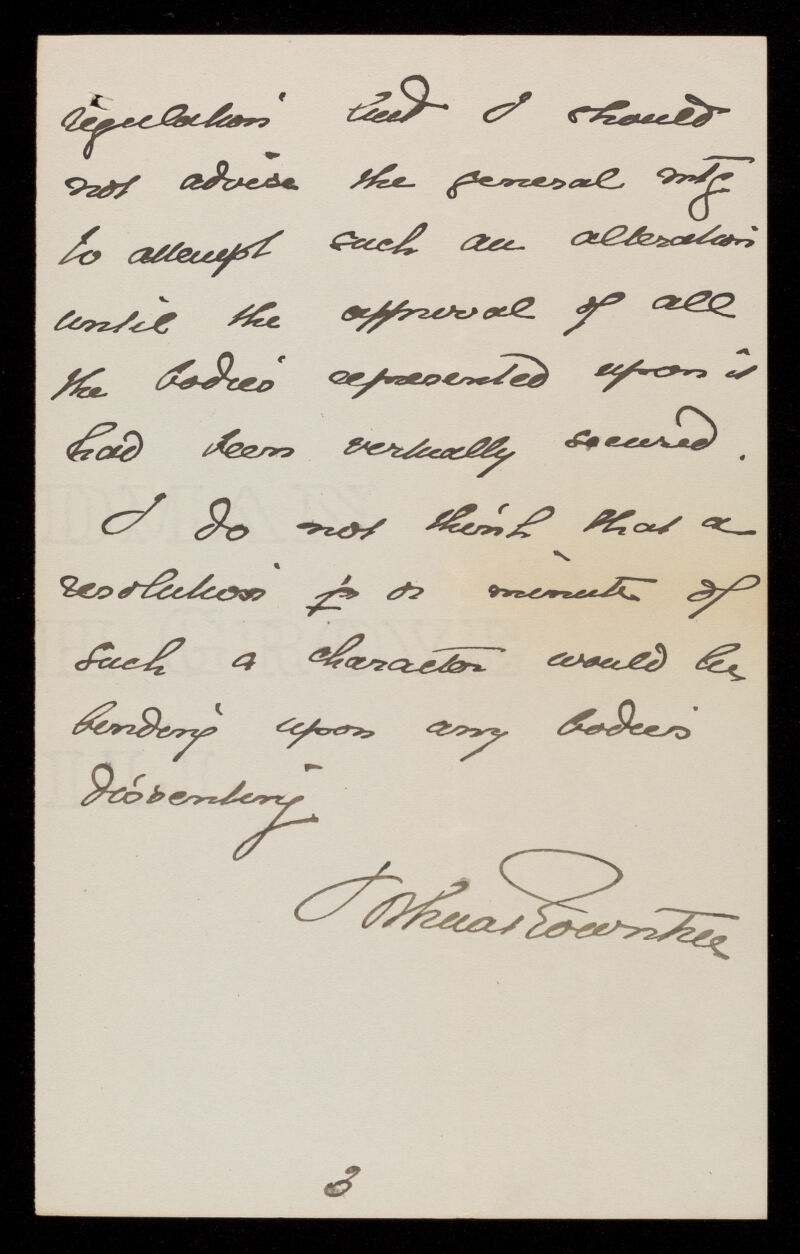 regulation but I should
not advise the general mtg
to attempt such an alteration
until the approval of all
the bodies represented upon it
had been vertually secured.
I do not think that a
resolution or minute of
such a character would be
binding upon any bodies
dissenting
Joshua Rowntree
3